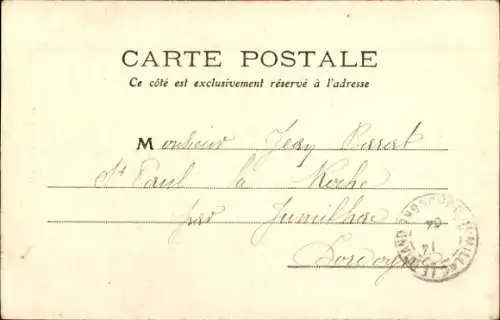 CARTE POSTALE
Ce côté est exclusivement réservé à l'adresse
Monsieur Jean
St Paul la Roche
par Jumilhac
Dordogne
JUMILHAC LE GRAND
14
04